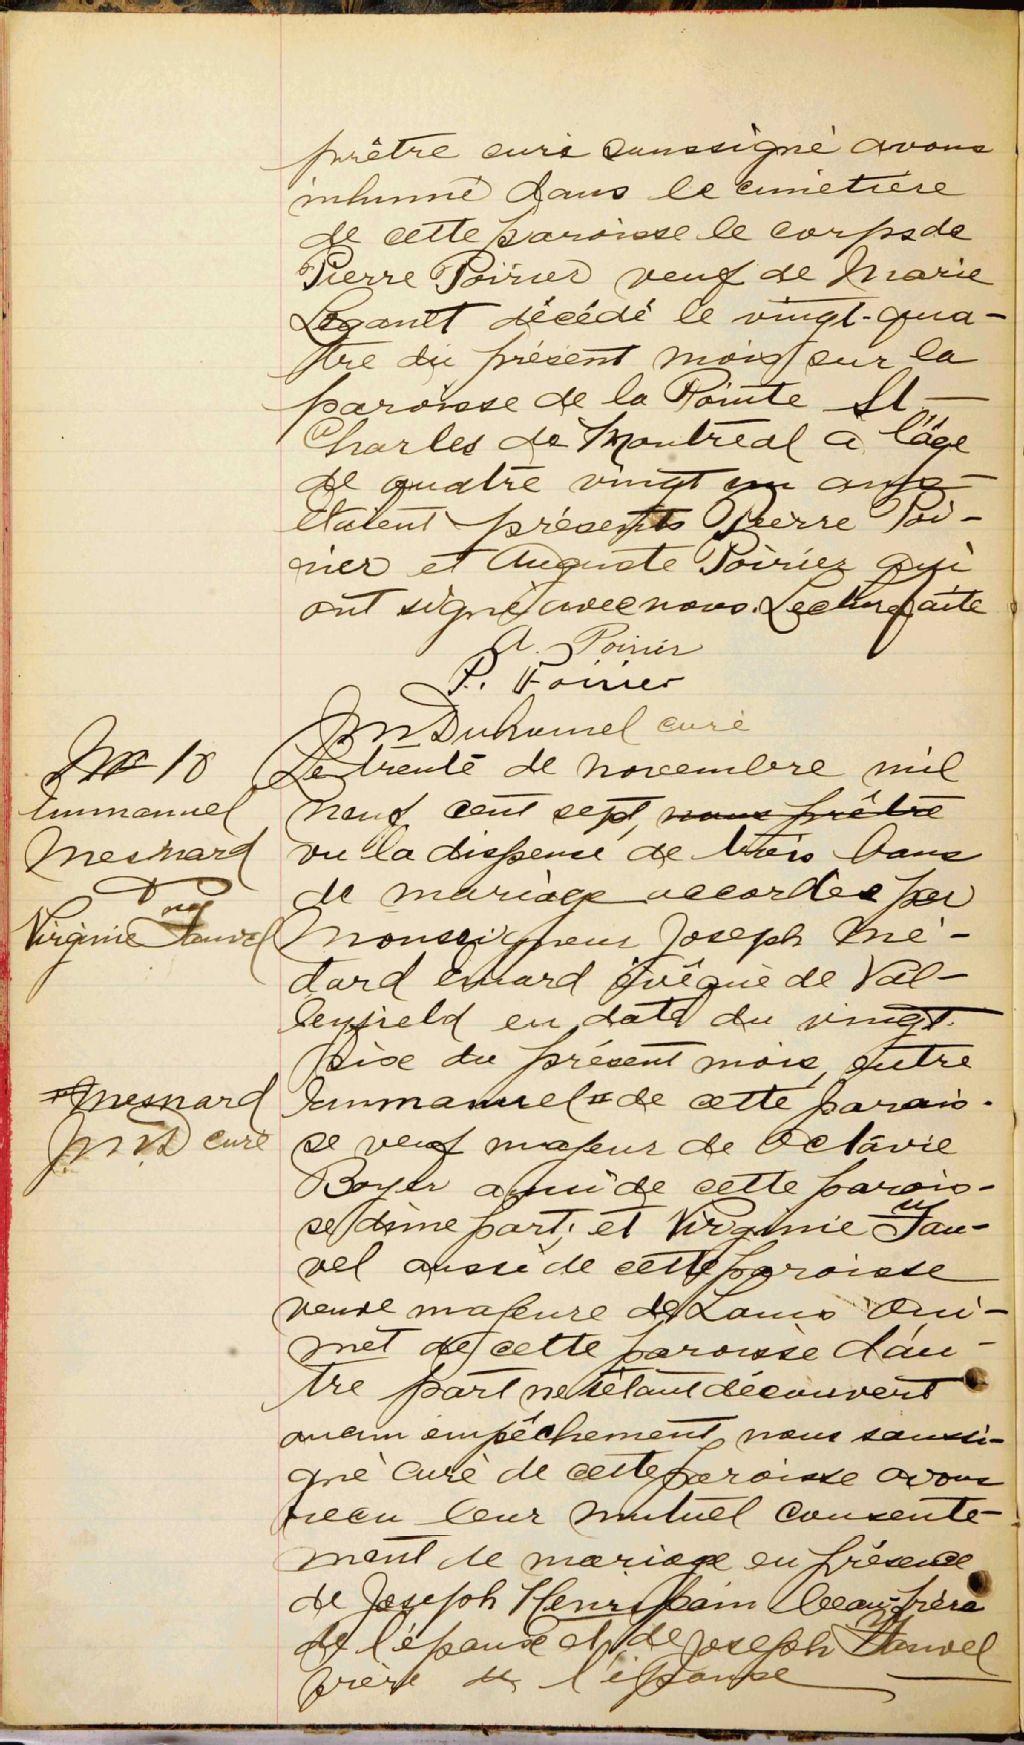 prêtre curé soussigné avons
inhumé dans le cimetière
de cette paroisse le corps de
Pierre Poirier veuf de Marie
Legault décédé le vingt-qua-
tre du présent mois sur la
paroisse de la Pointe St
Charles de Montréal à l'âge
de quatre vingt un ans
Etaient présents Pierre Poi-
rier et Auguste Poirier qui
ont signé avec nous. Lecture faite
A. Poirier
P. Poirier
Duhamel curé
M 18
Emmanuel
Mesnard
Virginie
Le trente de novembre mil
neuf cent sept, nous prêtre
vu la dispense de trois bans
de mariage accordée par
Monseigneur Joseph Mé-
dard Emard évêque de Val-
leyfield en date du vingt-
six du présent mois, entre
Emmanuel # de cette parois-
# Mesnard
curé
se veuf majeur de Octavie
Boyer aussi de cette parois-
se d'une part; et Virginie
vel aussi de cette paroisse
veuve majeure de Louis Oui-
met de cette paroisse d'au-
tre part ne s'étant découvert
aucun empêchement, nous soussi-
gné curé de cette paroisse avons
recu leur mutuel consente-
ment de mariage en présence
de Joseph Henri beau-frère
de l'épouse et de Joseph
frère de l'épouse